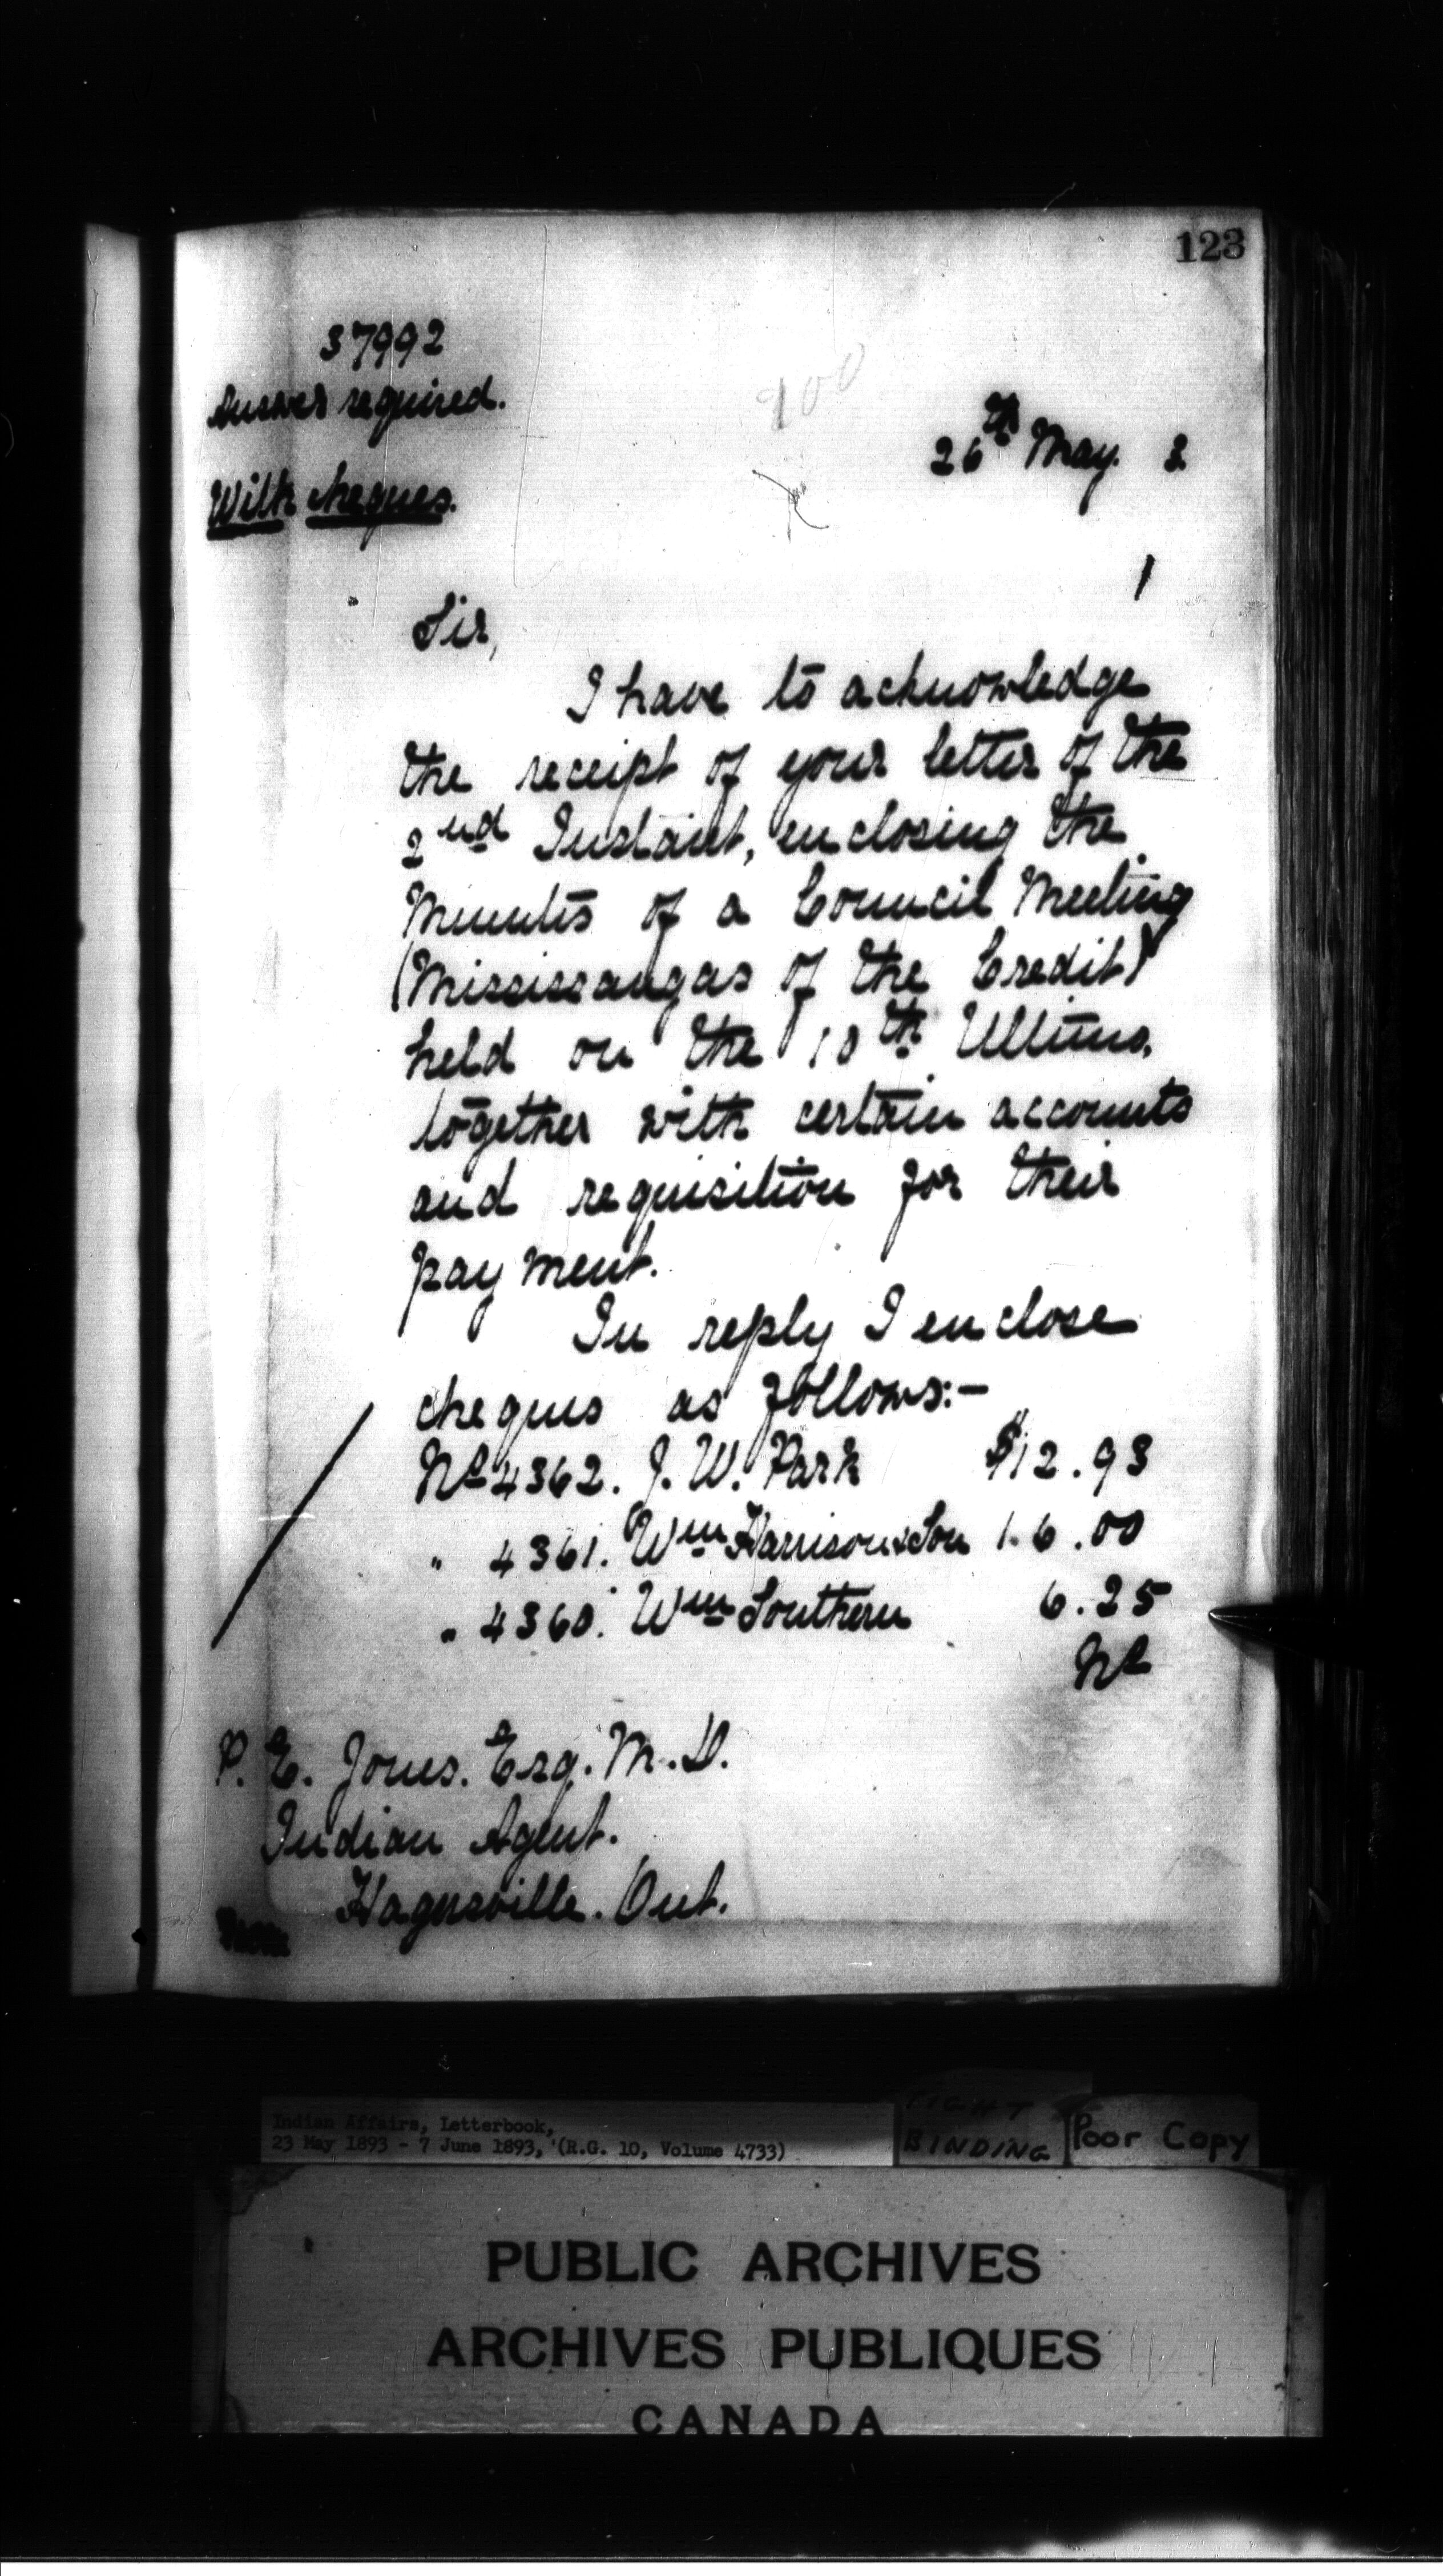 123
37992
Answer required.
26th May. 3
With cheques.
Sir,
I have to acknowledge
the receipt of your letter of the
2nd Instant, enclosing the
Minutes of a Council Meeting
(Mississaugas of the Credit)
held on the 10th Ultimo,
together with certain accounts
and requisition for their
payment.
In reply I enclose
cheques as follows:-
No 4362. J. W. Park $12.93
" 4361. Wm Harrison & Son 16.00
" 4360. Wm Southern 6.25
No
P. E. Jones. Esq. M.D.
Indian Agent.
Hagersville. Ont.
Indian Affairs, Letterbook,
23 May 1893 - 7 June 1893, (R.G. 10, Volume 4733)
TIGHT
BINDING
Poor Copy
PUBLIC ARCHIVES
ARCHIVES PUBLIQUES
CANADA